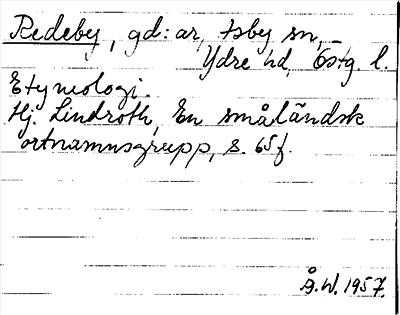 Redeby, gd:ar, Asby sn,
Ydre hd, Östg l.
Etymologi.
Hj. Lindroth, En småländsk
ortnamnsgrupp, s. 65f.
Å.W. 1957.